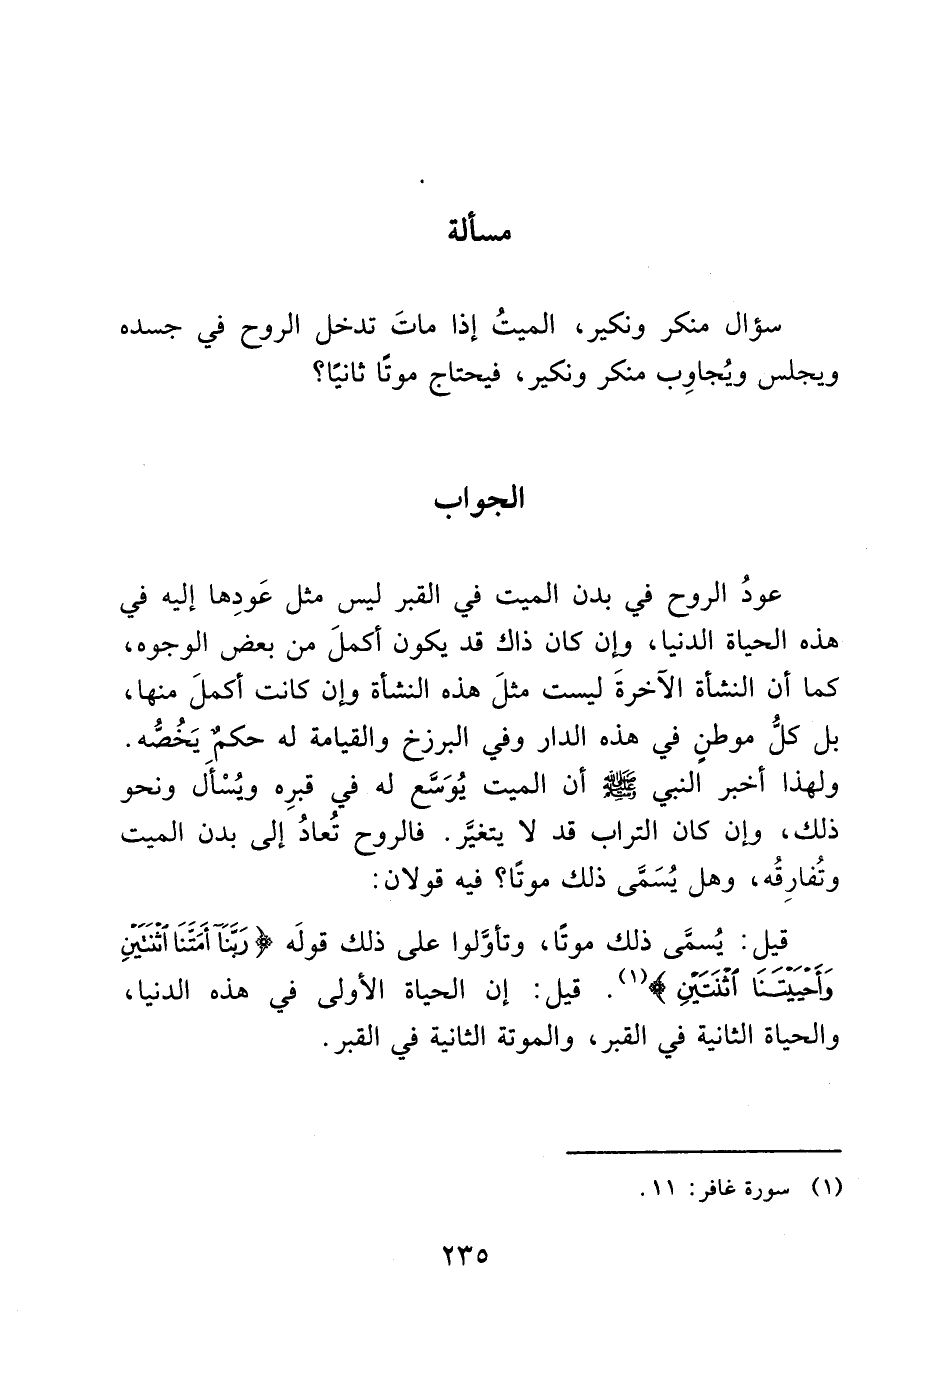 مسألة
سؤال منكر ونكير، الميتُ إذا ماتَ تدخل الروح في جسده
ويجلس ويُجاوِب منكر ونكير، فيحتاج موتًا ثانيًا؟
الجواب
عودُ الروح في بدن الميت في القبر ليس مثل عَودِها إليه في
هذه الحياة الدنيا، وإن كان ذاك قد يكون أكملَ من بعض الوجوه،
كما أن النشأة الآخرةَ ليست مثلَ هذه النشأة وإن كانت أكملَ منها،
بل كلُّ موطنٍ في هذه الدار وفي البرزخ والقيامة له حكمٌ يَخُصُّه.
ولهذا أخبر النبي ﷺ أن الميت يُوَسَّع له في قبرِه ويُسْأَل ونحو
ذلك، وإن كان التراب قد لا يتغيَّر. فالروح تُعادُ إلى بدن الميت
وتُفارِقُه، وهل يُسَمَّى ذلك موتًا؟ فيه قولان:
قيل: يُسمَّى ذلك موتًا، وتأوَّلوا على ذلك قولَه ﴿رَبَّنَآ أَمَتَّنَا ٱثْنَتَيْنِ
وَأَحْيَيْتَنَا ٱثْنَتَيْنِ﴾(١). قيل: إن الحياة الأولى في هذه الدنيا،
والحياة الثانية في القبر، والموتة الثانية في القبر.
(١) سورة غافر: ١١.
٢٣٥